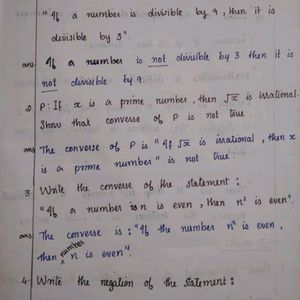 "If a number is divisible by 9, then it is
divisible by 3".
ans: If a number is not divisible by 3 then it is
not divisible by 9.
2. P: If x is a prime number, then √x is irrational.
Show that converse of P is not true.
ans The converse of P is "If √x is irrational, then x
is a prime number" is not true.
3. Write the converse of the statement:
"If a number is n is even, then n² is even".
ans The converse is: "If the number n² is even,
then number n is even".
4. Write the negation of the statement: